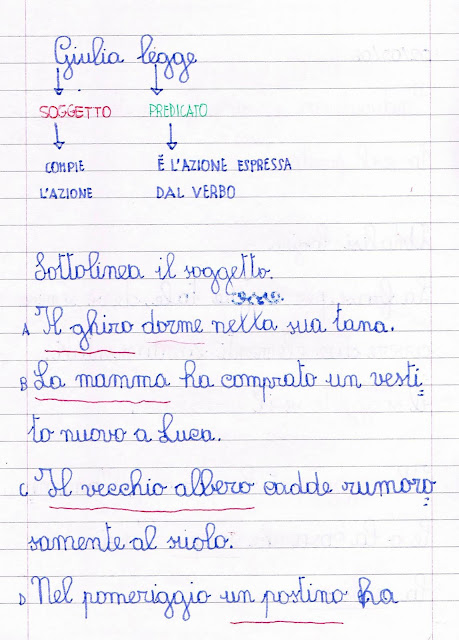 Giulia legge
SOGGETTO PREDICATO
COMPIE È L'AZIONE ESPRESSA
L'AZIONE DAL VERBO
Sottolinea il soggetto.
A Il ghiro dorme nella sua tana.
B La mamma ha comprato un vesti
to nuovo a Luca.
C Il vecchio albero cadde rumoro
samente al suolo.
D Nel pomeriggio un postino ha